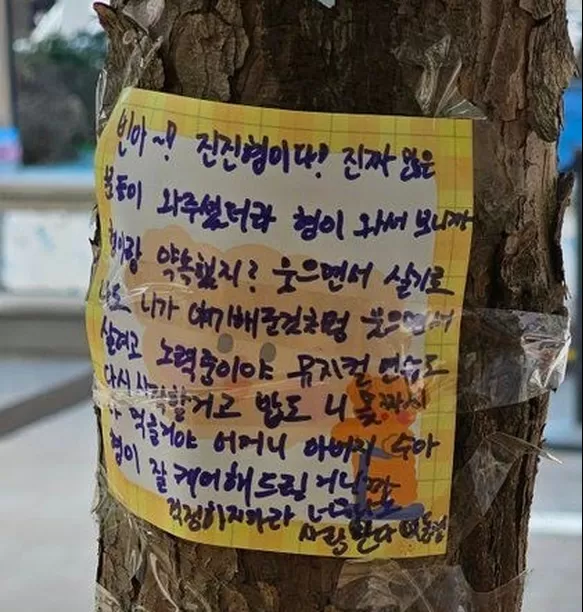 빈아~! 진진형이다! 진짜 많은
분들이 와주셨더라 형이 와서 보니까
형이랑 약속했지? 웃으면서 살기로
나도 니가 얘기해준것처럼 웃으면서
살려고 노력중이야 뮤지컬 연습도
다시 시작할거고 밥도 니 몫까지
다 먹을거야 어머니 아버지 수아
형이 잘 케어해드릴 거니까
걱정하지마라
사랑한다 내동생